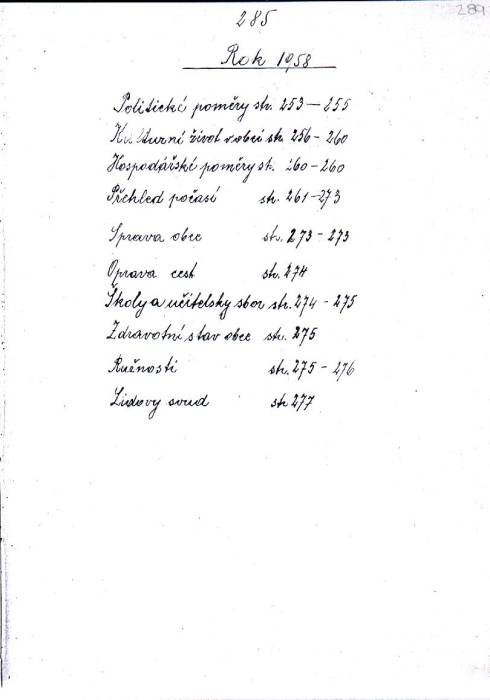 289
285
Rok 1958
Politické poměry str. 253 — 255
Kulturní život v obci str. 256 - 260
Hospodářské poměry st. 260 - 260
Přehled počasí str. 261 - 273
Sprava obce str. 273 - 273
Oprava cest str. 274
Školy a učitelsky sbor str. 274 - 275
Zdravotní stav obce str. 275
Ručnosti str. 275 - 276
Lidovy soud str 277